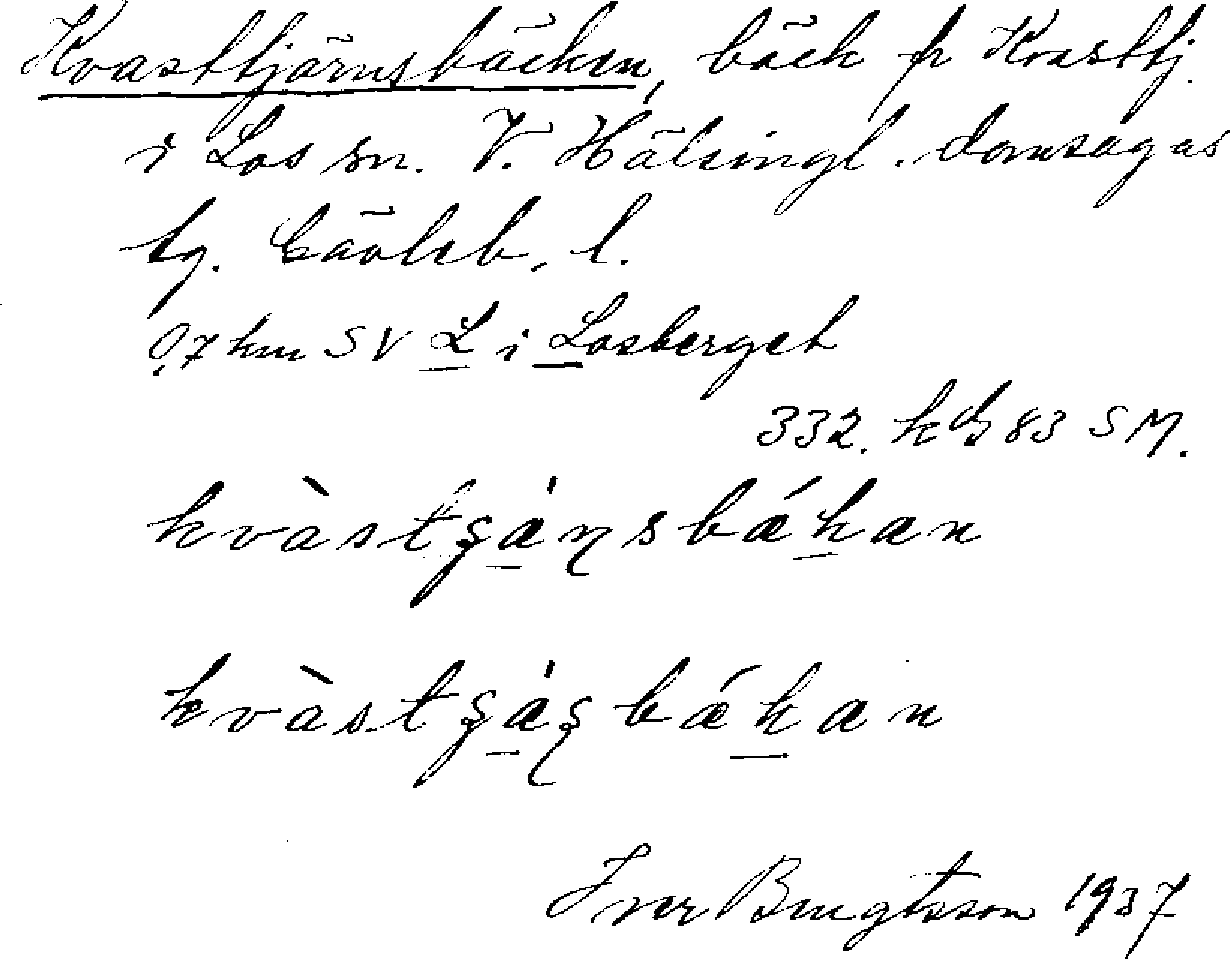 Kvasttjärnsbäcken, bäck fr Kvasttj.
i Los sn. V. Hälsingl. domsagas
tg. Gävleb. l.
0,7 km SV L i Losberget
332. kbl 83 SM.
kvàstʂán̥sbǽkan
kvàstʂáʂbǽkan
Iver Bengtsson 1937